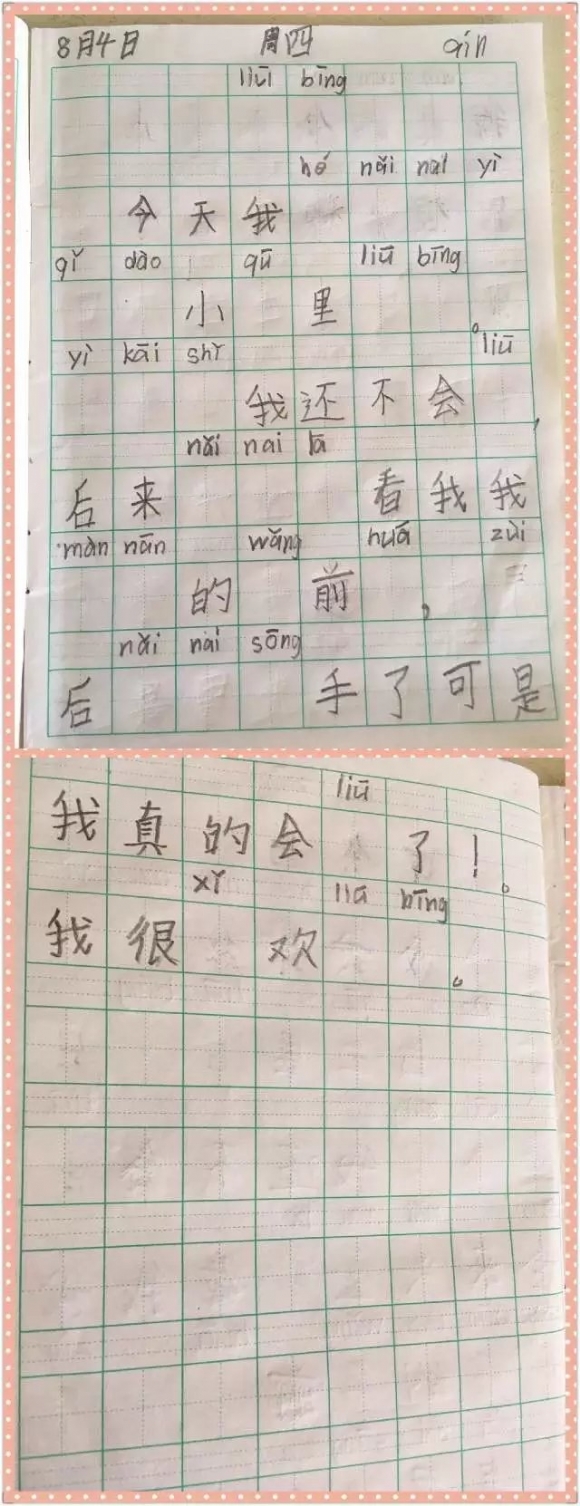 8月4日 周四 qín
liūi bīng
hé nǎi nai yì
今天我
qǐ dào qū liū bīng
小里。
yì kāi shǐ liū
我还不会，
nǎi nai lā
后来看我我
màn nān wǎng huá zuì
的前，
nǎi nai sōng
后手了可是
liū
我真的会了！。
xǐ liū bīng
我很欢。